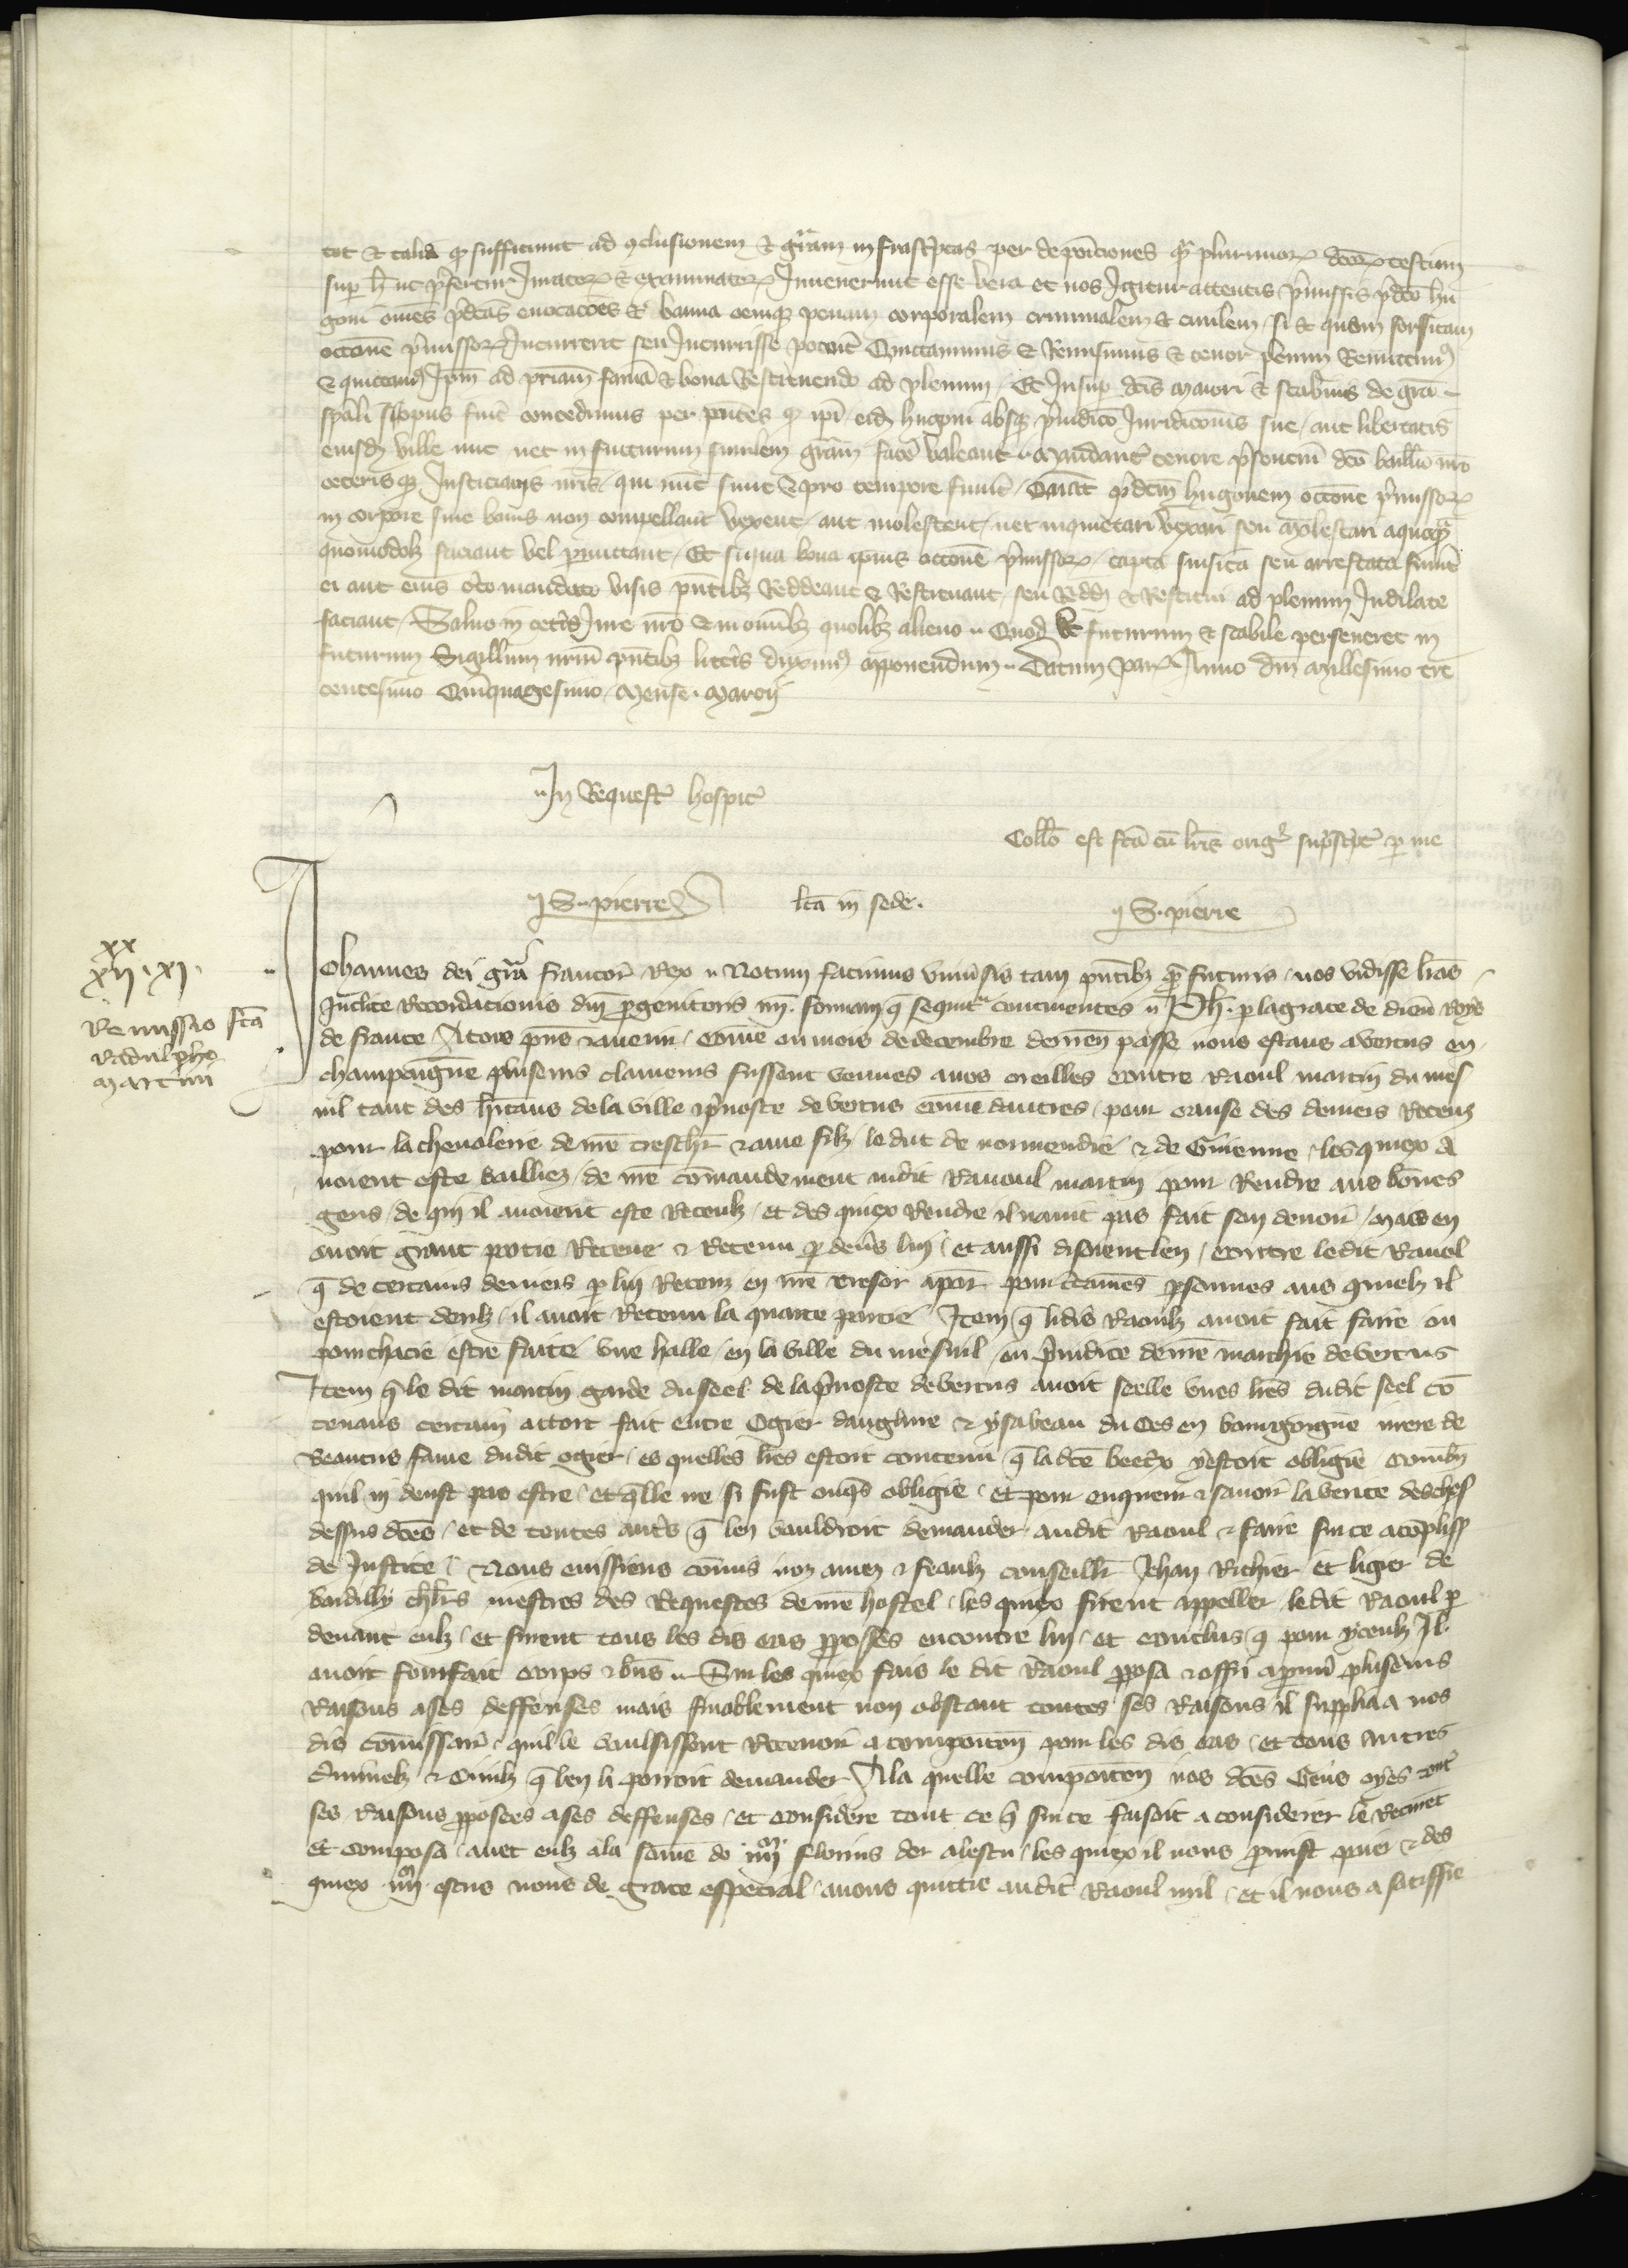 tot et talia quod sufficiunt ad conclusionem et gratiam infrascriptas per deposiciones quam plurimorum dictorum testium
super hoc ut prefertur Juratorum et examinatorum Invenerunt esse vera et nos Igitur attentis premissis predicto hu
goni omnes predictas evocaciones et banna omnemque penam corporalem criminalem et civilem si et quam forsitam
occasione premissorum Incurrerit seu Incurrisse potuit Quictavimus et Remisimus et tenore presentium Remittimus
et quictamus Ipsum ad patriam famam et bona Restituendo ad plenum Et Insuper dictis Maiori et Scabinis de gratia
speciali si opus fuerit concedimus per presentes quod ipsi eidem hugoni absque preiudicio Juridicionis sue aut libertatis
eiusdem ville nunc vel in futurum similem gratiam facere valeant Mandantes tenore presentium dicto baillivo nostro
ceterisque Justiciariis nostris qui nunc sunt et pro tempore fuerint Quatinus predictum hugonem occasione premissorum
in corpore sive bonis non compellant vexent aut molestent nec inquietari vexari seu molestari a quoquam
quomodolibet faciant vel permittant Et si qua bona ipsius occasione premissorum capta saisita seu arrestata fuerint
ei aut eius certo mandato visis presentibus Reddeant et Restituant seu Reddi et Restitui ad plenum Indilate
faciant Salvo in ceteris Jure nostro et in omnibus quolibet alieno Quod ut futurum et stabile perseveret in
futurum Sigillum nostrum presentibus litteris duximus apponendum Datum Parisius Anno domini Millesimo tre
centesimo Quinquagesimo Mense Marcii
In Requestis hospicii
Collatio est facta cum litteris originalibus suprascriptis per me
S. pierre lecta in sede. S. pierre
xx
xii . xi.
Remissio facta
Radulpho
Martini
Johannes dei gratia francorum Rex Notum facimus universis tam presentibus quam futuris nos vidisse litteras
Inclite Recordacionis domini progenitoris nostri formam que sequitur continentes Ph. par la grace de dieu Roys
de france A tous presens et avenir comme ou mois de decembre derrenier passe nous estans a vertus en
champengne pluseurs clameurs fussent venues a nos oreilles contre Raoul martin du mes
nil tant des habitans de la ville et prevoste de vertus comme dautres pour cause des deniers Receuz
pour la chevalerie de nostre treschier et ame filz le duc de normendie et de Guienne les quiex a
voient este bailliez de nostre commandement audit Raououl martin pour Rendre aus bonnes
gens de qui il avoient este Receuz et des quiex Rendre il navoit pas fait son devoir mais en
avoit grant partie Recene et Retenu par devers lui et aussi disoient len contre ledit Raoul
que de certains deniers par lui Receuz en nostre tresor a paris pour certaines personnes aus quielz il
estoient deuz il avoit Retenu la quarte partie Item que lidis Raoulz avoit fait faire ou
pourchacie estre faite une halle en la ville du mesnil ou preiudice de nostre marchie de vertus
Item que le dit martin garde du seel de la prevoste de vertus avoit seelle unes lettres dudit seel con
tenans certain accort fait entre Ogier danglure et ysabeau du Ces en bourgongne mere de
Beatrix fame dudit ogier es quelles lettres estoit contenu que la dicte beatrix yestoit obligie combien
quil ni deust pas estre et quelle ne si fust onques obligie et pour enquerir et savoir la verite des choses
dessus dictes et de toutes autres que len vouldroit demander audit Raoul et faire sur ce acomplissement
de Justice Nous eussiens commis noz amez et feaulz conseilliers Jehan Richier et ligier de
bardilly chevaliers mestres des Requestes de nostre hostel les quiex firent appeller ledit Raoul par
devant eulz et furent tous les dis cas proposes encontre lui et conclus que pour yceulz Il
avoit fourfait corps et biens Sur les quiex fais le dit Raoul proposa et offri a prouver pluseurs
Raisons a ses deffenses mais finablement non obstant toutes ses Raisons il supplia a nos
dis commissaires quil le voulsissent Recevoir a composicion pour les dis cas et tous autres
Criminelz et Civilz que len li porroit demander A la quelle composicion nos dictes Gens oyes tout
ses Raisons proposees a ses deffenses et considere tout ce que sur ce faisoit a considerer le Recurent
et composa avec eulz a la somme de iiii m florins dor a lescu les quiex il nous promist paier et des
quiex iiii m escus nous de grace especial avons quittie audit Raoul mil et il nous a satisffie